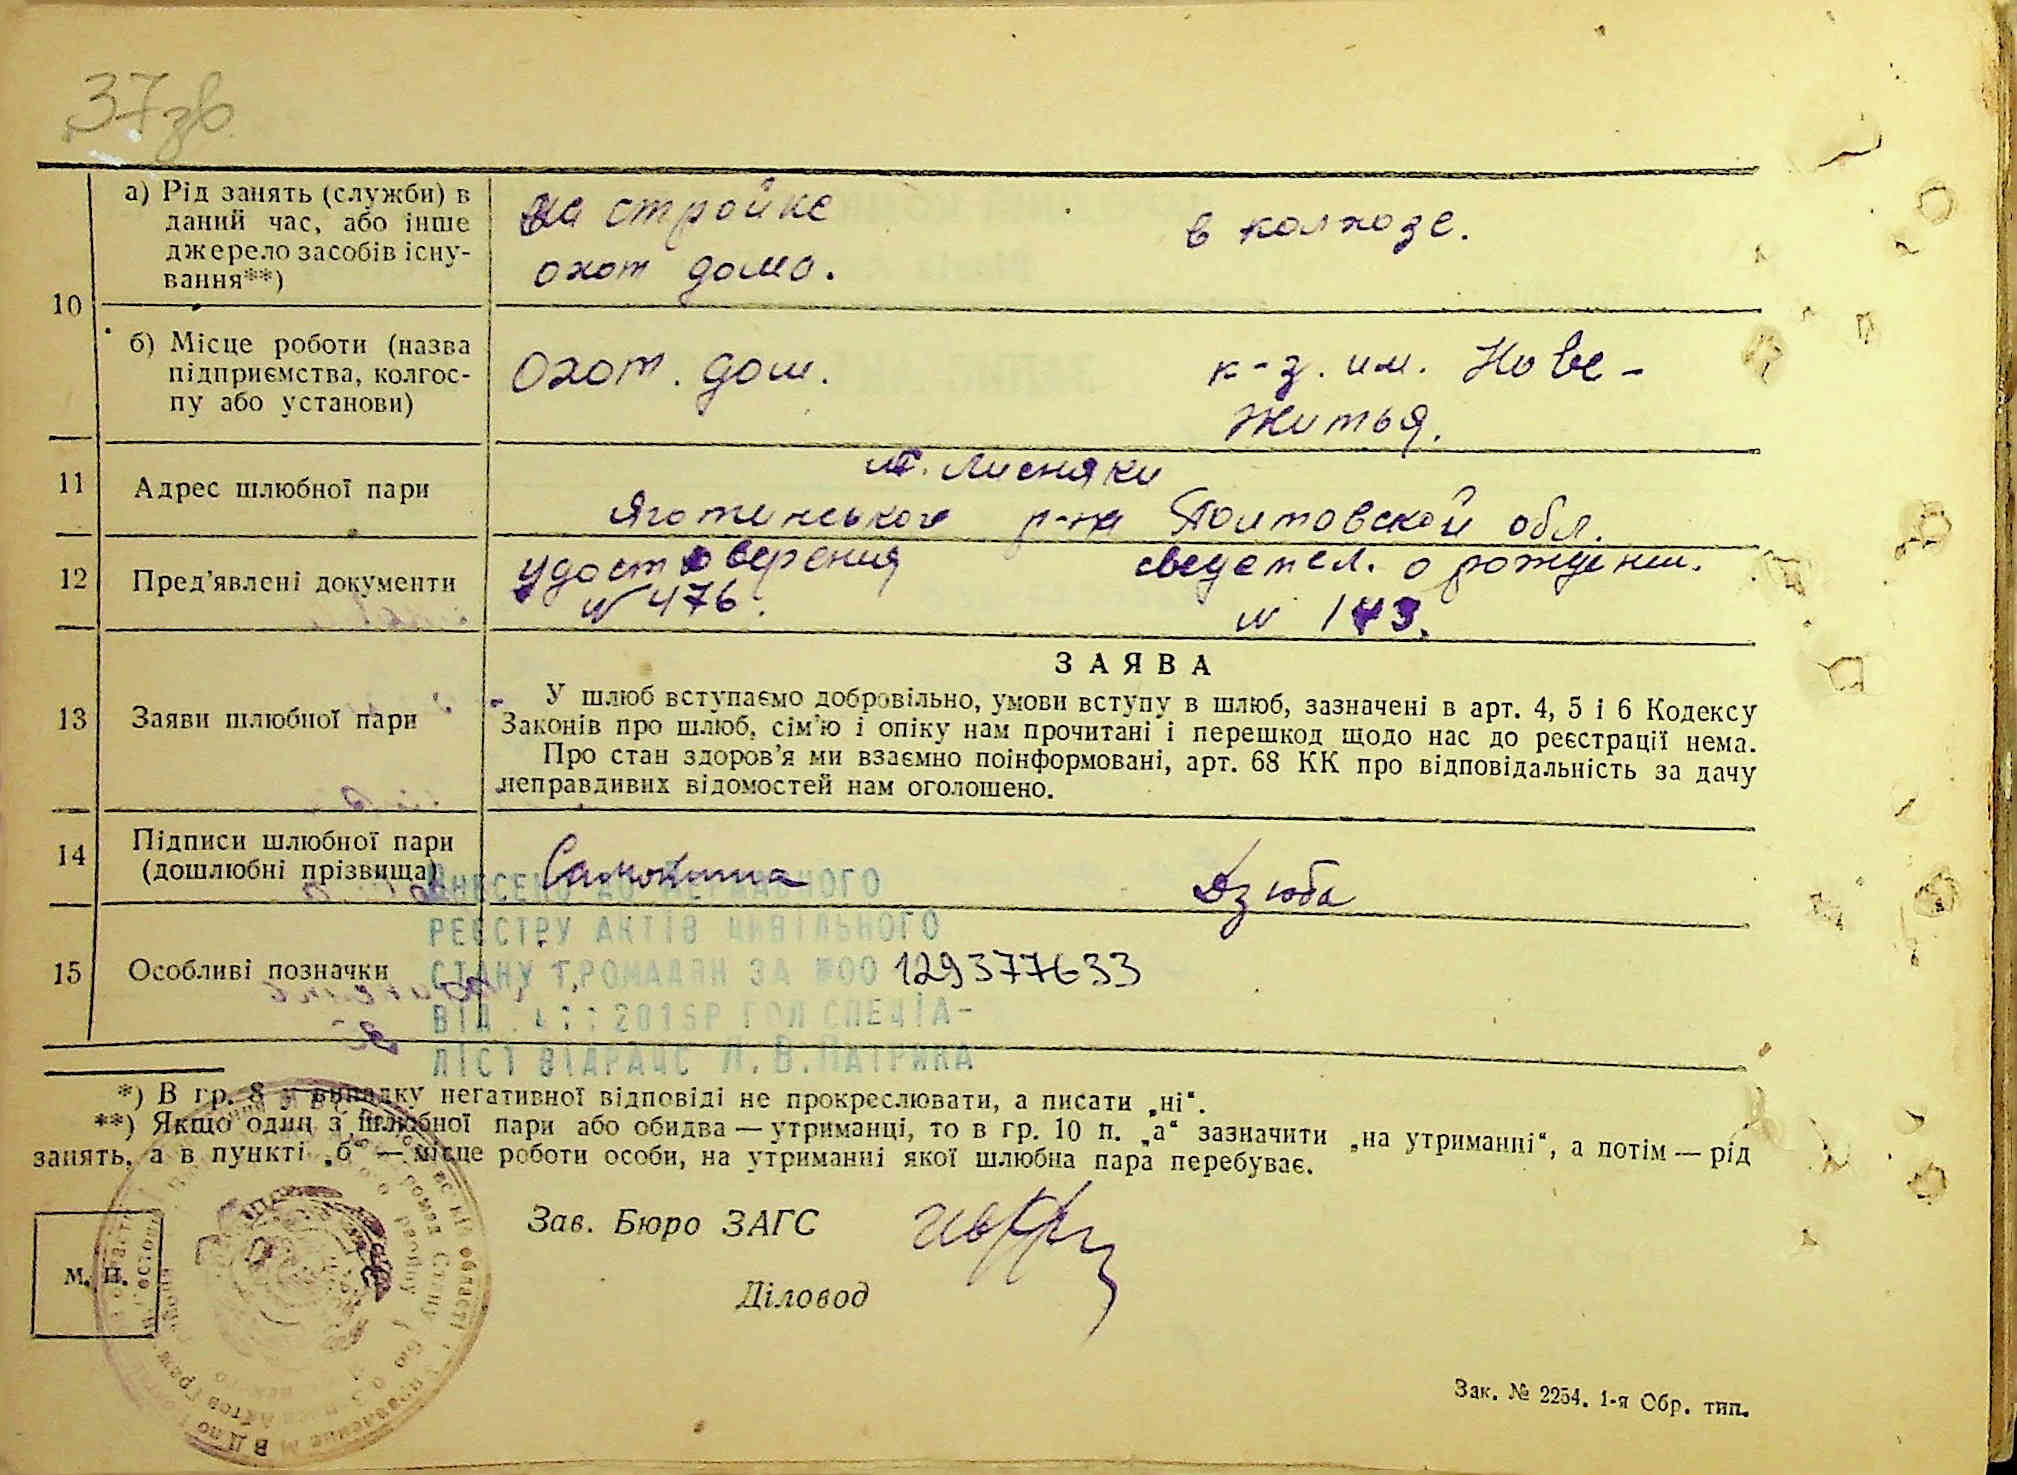 37зв
а) Рід занять (служби) в
даний час, або інше
джерело засобів існу-
вання**)
на стройке
охот дома.
в колхозе.
10
б) Місце роботи (назва
підприємства, колгос-
пу або установи)
Охот. дом.
к-з. им. Нове-
Житья.
11
Адрес шлюбної пари
Лисняки
Яготинського р-на Полтовской обл.
12
Пред’явлені документи
удостоверения
№ 476.
свидетел. о рождении.
№ 143.
13
Заяви шлюбної пари
ЗАЯВА
У шлюб вступаємо добровільно, умови вступу в шлюб, зазначені в арт. 4, 5 і 6 Кодексу
Законів про шлюб, сім’ю і опіку нам прочитані і перешкод щодо нас до реєстрації нема.
Про стан здоров’я ми взаємно поінформовані, арт. 68 КК про відповідальність за дачу
неправдивих відомостей нам оголошено.
14
Підписи шлюбної пари
(дошлюбні прізвища)
Дзюба
15
Особливі позначки
ВНЕСЕНО ДО ДЕРЖАВНОГО
РЕЄСТРУ АКТІВ ЦИВІЛЬНОГО
СТАНУ ГРОМАДЯН ЗА №00 129377633
ВІД 2015Р ГОЛ СПЕЦІА-
ЛІСТ ВІДРАЦС Л.В.ПАТРИКА
*) В гр. 8 у випадку негативної відповіді не прокреслювати, а писати „ні“.
**) Якщо один з шлюбної пари або обидва — утриманці, то в гр. 10 п. „а“ зазначити „на утриманні“, а потім — рід
занять, а в пункті „б“ — місце роботи особи, на утриманні якої шлюбна пара перебуває.
Зав. Бюро ЗАГС
Діловод
М. П.
Зак. № 2254. 1-я Обр. тип.